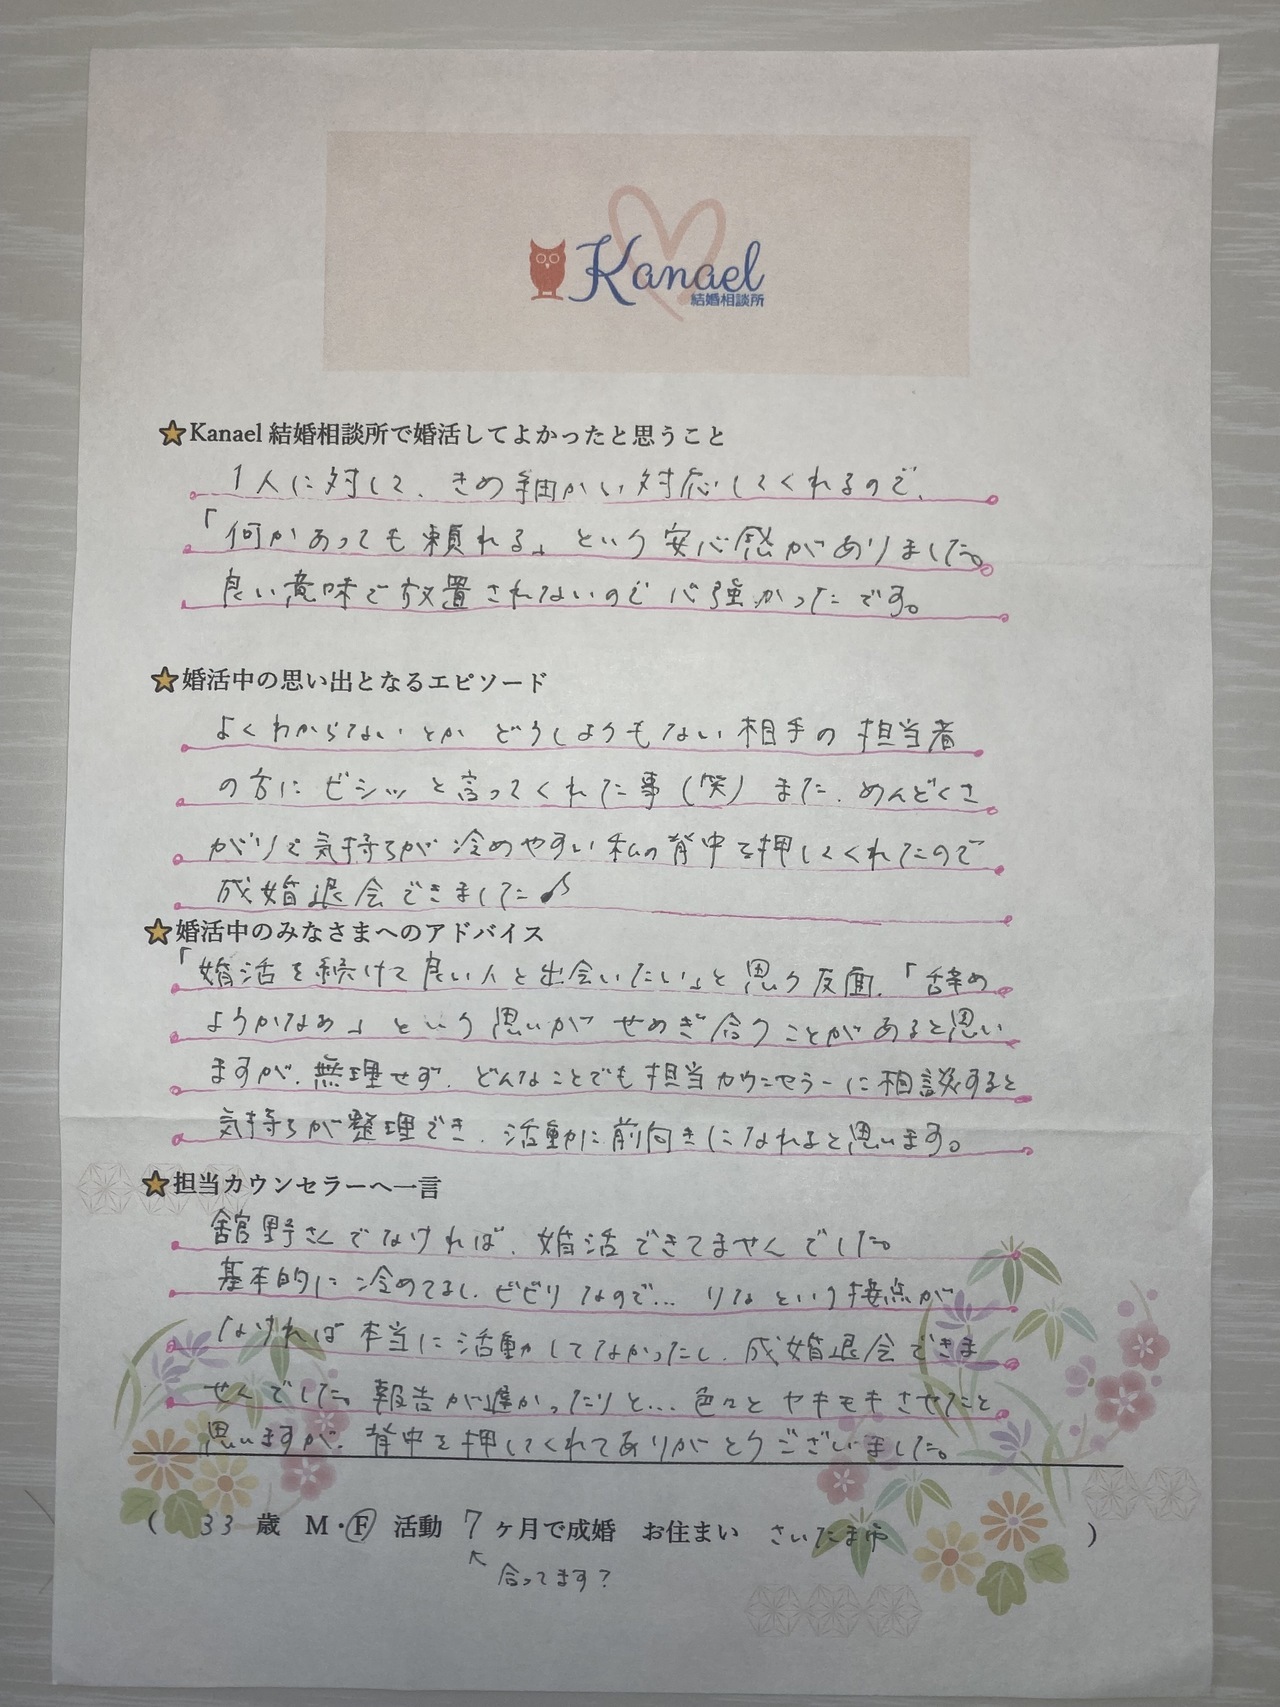 Kanael
結婚相談所
Kanael 結婚相談所で婚活してよかったと思うこと
1人に対して、きめ細かい対応してくれるので、
「何かあっても頼れる」という安心感がありました。
良い意味で放置されないので心強かったです。
婚活中の思い出となるエピソード
よくわからないとかどうしようもない相手の担当者
の方にビシッと言ってくれた事(笑)また、めんどくさ
がりで気持ちが冷めやすい私の背中を押してくれたので
成婚退会できました♪
婚活中のみなさまへのアドバイス
「婚活を続けて良い人と出会いたい」と思う反面、「辞め
ようかなぁ」という思いがせめぎ合うことがあると思い
ますが、無理せず、どんなことでも担当カウンセラーに相談すると
気持ちが整理でき、活動に前向きになれると思います。
担当カウンセラーへ一言
舘野さんでなければ、婚活できてませんでした。
基本的に冷めてるし、ビビリなので… りなという接点が
なければ本当に活動してなかったし、成婚退会できま
せんでした。報告が遅かったりと… 色々とヤキモキさせたこと
思いますが、背中を押してくれてありがとうございました。
( 33 歳 M・F 活動 7 ヶ月で成婚 お住まい さいたま市 )
↖
合ってます?